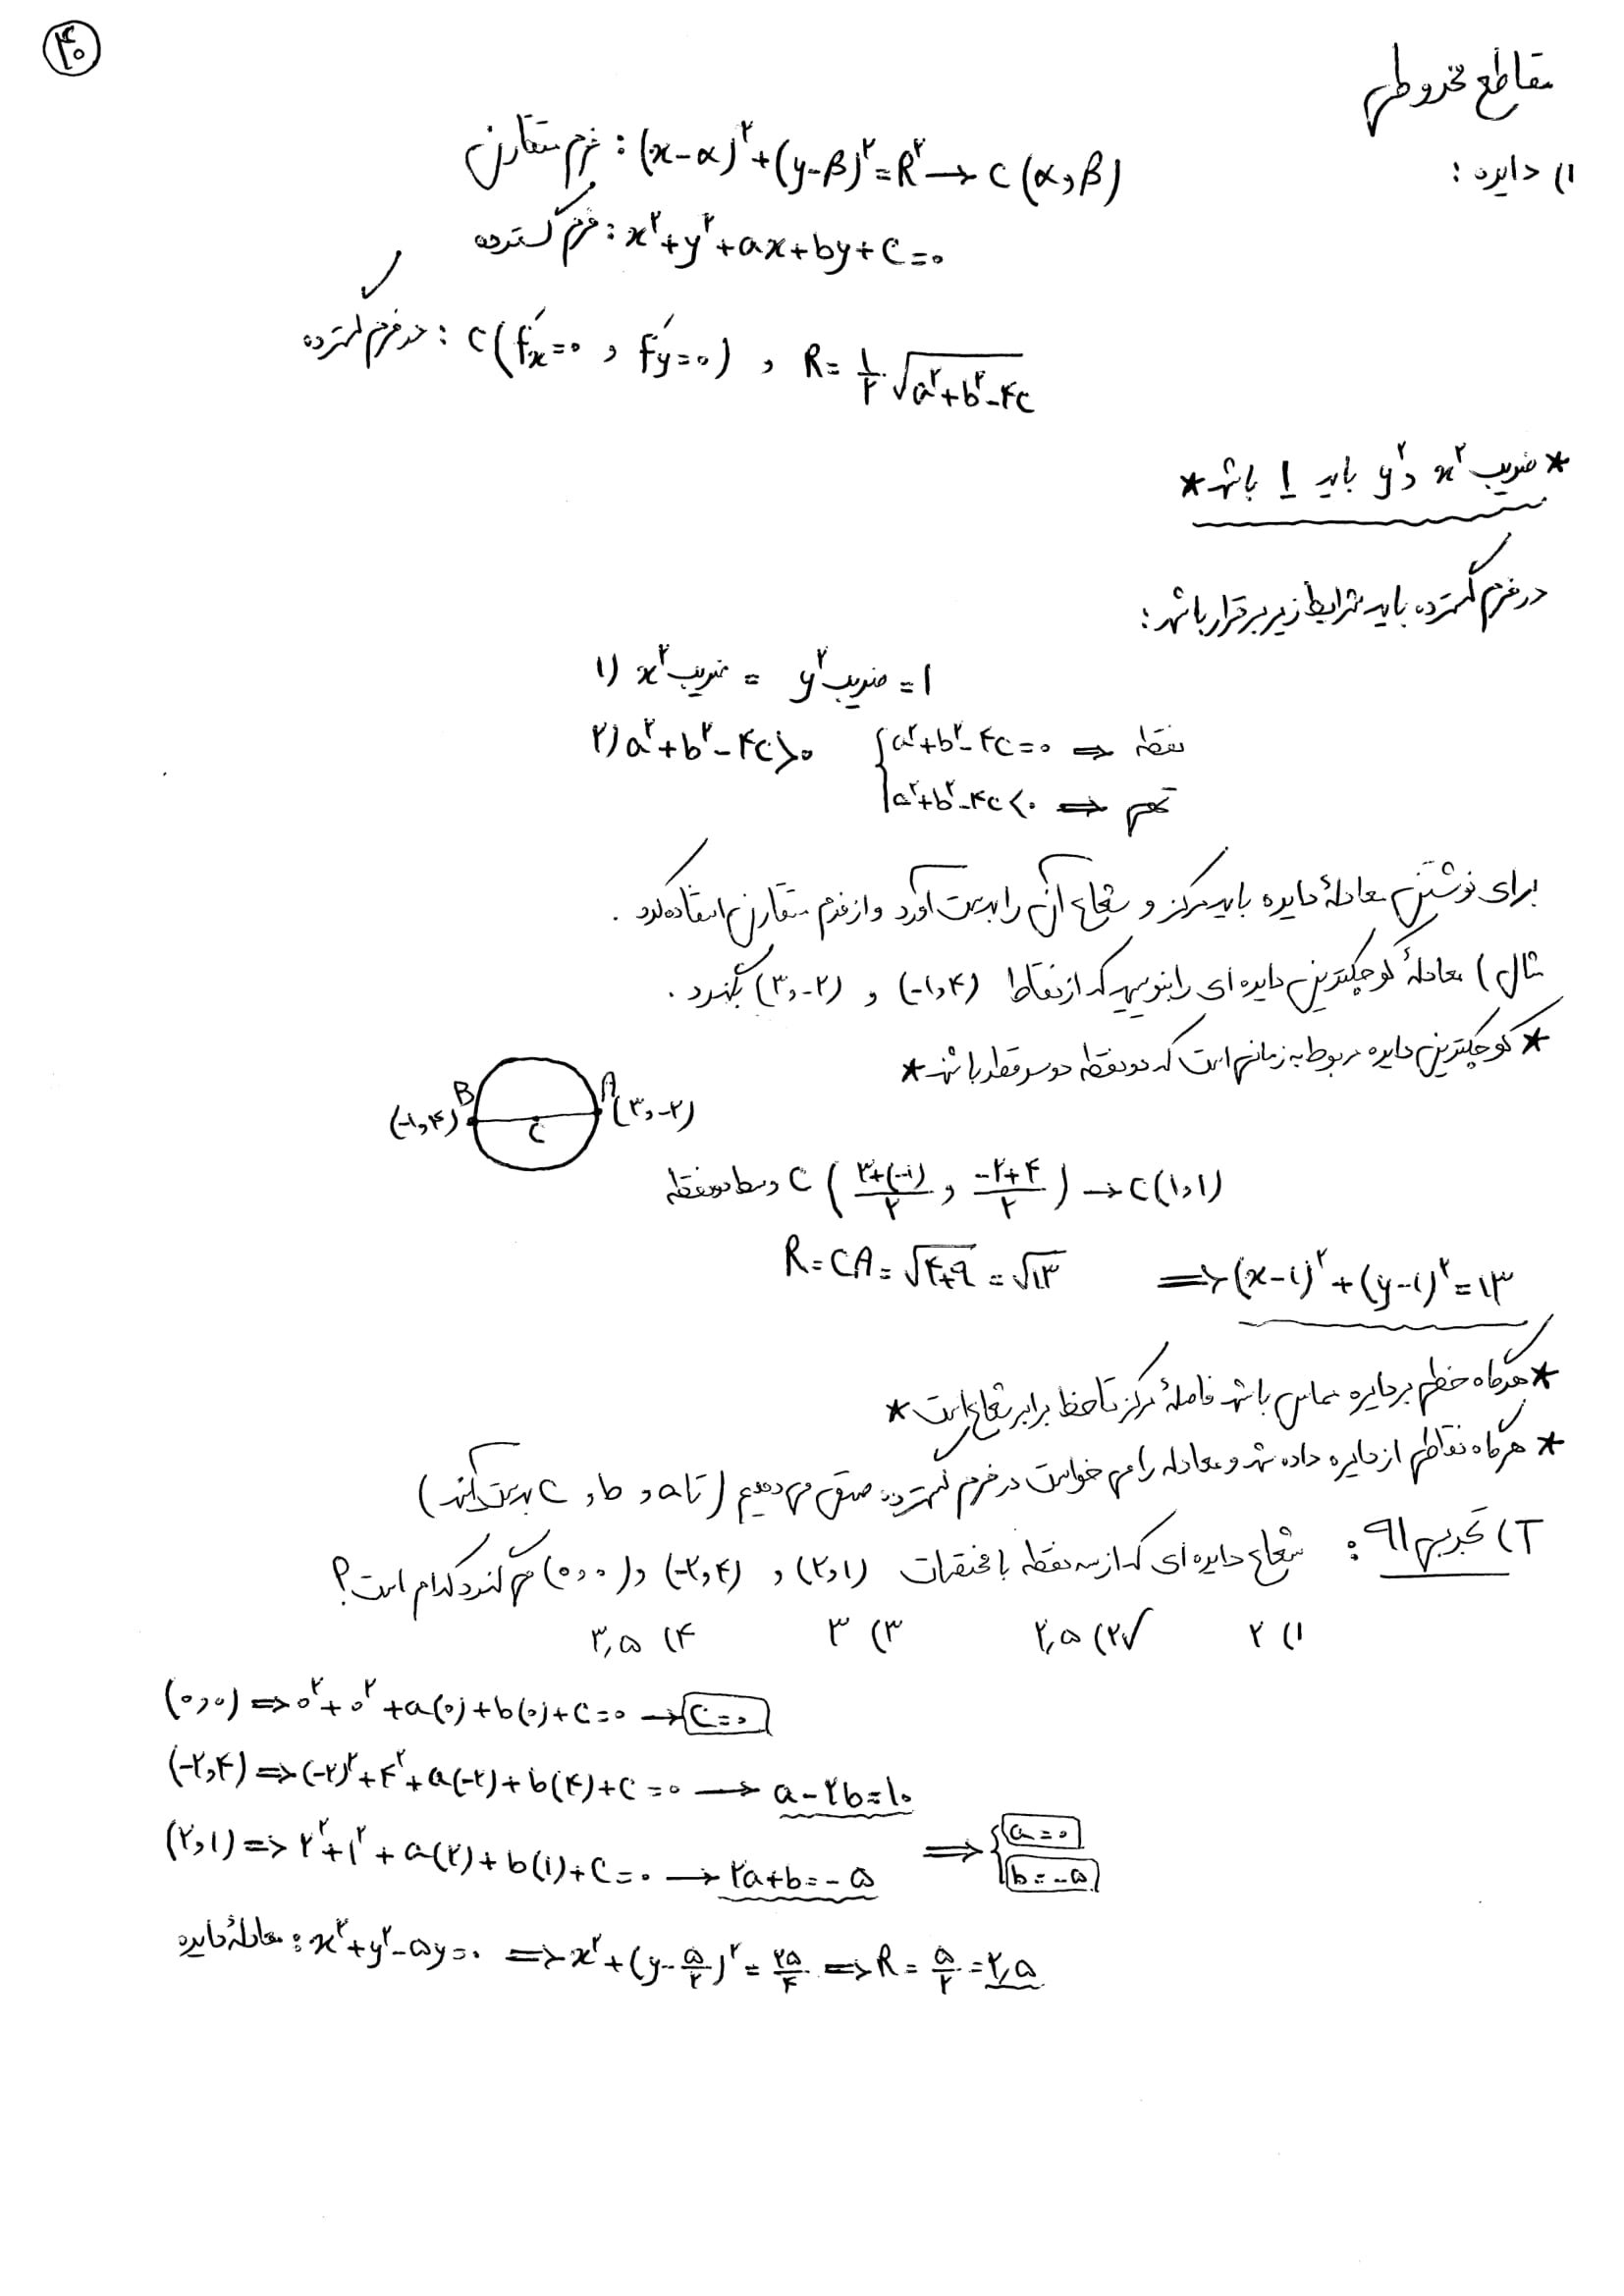 ۴۰
مقاطع مخروطی
۱) دایره :
فرم متقارن : (x-α)^۲+(y-β)^۲=R^۲ → C(α,β)
فرم گسترده : x^۲+y^۲+ax+by+c=۰
در فرم گسترده : C(f'x=۰ , f'y=۰) , R=۱/۲ √(a^۲+b^۲-۴c)
* ضریب x^۲ و y^۲ باید ۱ باشد *
در فرم گسترده باید شرایط زیر برقرار باشد :
۱) ضریب x^۲ = ضریب y^۲ = ۱
۲) a^۲+b^۲-۴c>۰ { a^۲+b^۲-۴c=۰ ⇒ نقطه
a^۲+b^۲-۴c<۰ ⇒ تهی
برای نوشتن معادلهٔ دایره باید مرکز و شعاع آن را بدست آورد و از فرم متقارن استفاده کرد .
مثال ) معادلهٔ کوچکترین دایره ای را بنویسید که از نقاط (-۱,۴) و (۳,-۲) بگذرد .
* کوچکترین دایره مربوط به زمانی است که دو نقطه دو سر قطر باشند *
(-۱,۴) B C A (۳,-۲)
وسط دو نقطه C ( (۳+(-۱))/۲ , (-۲+۴)/۲ ) → C(۱,۱)
R=CA=√(۴+۹) =√۱۳ ⇒ (x-۱)^۲+(y-۱)^۲=۱۳
* هرگاه خطی بر دایره مماس باشد فاصلهٔ مرکز تا خط برابر شعاع است *
* هرگاه نقاطی از دایره داده شد و معادله را می خواست در فرم گسترده صدق می دهیم (تا a و b و c بدست آیند)
T) تجربی ۹۱ : شعاع دایره ای که از سه نقطه با مختصات (۲,۱) , (-۲,۴) و (۰,۰) می گذرد کدام است ؟
۱) ۲ ✓۲) ۲٫۵ ۳) ۳ ۴) ۳٫۵
(۰,۰) ⇒ ۰^۲+۰^۲+a(۰)+b(۰)+c=۰ → c=۰
(-۲,۴) ⇒ (-۲)^۲+۴^۲+a(-۲)+b(۴)+c=۰ → a-۲b=۱۰
(۲,۱) ⇒ ۲^۲+۱^۲+a(۲)+b(۱)+c=۰ → ۲a+b=-۵ ⇒ { a=۰
b=-۵
معادلهٔ دایره : x^۲+y^۲-۵y=۰ ⇒ x^۲+(y-۵/۲)^۲=۲۵/۴ ⇒ R=۵/۲=۲٫۵